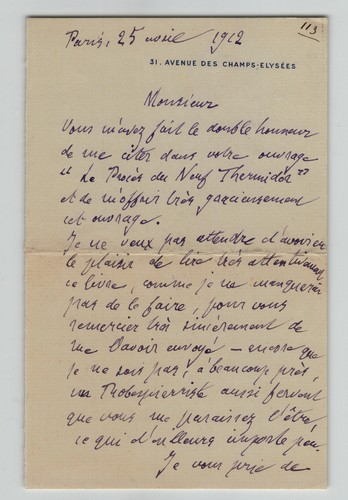 113
Paris, 25 avril 1912
31, AVENUE DES CHAMPS-ELYSÉES
Monsieur
Vous m'avez fait le double honneur
de me citer dans votre ouvrage
" Le Procès du Neuf Thermidor "
et de m'offrir très gracieusement
cet ouvrage.
Je ne veux pas attendre d'avoir eu
le plaisir de lire très attentivement
ce livre, comme je ne manquerai
pas de le faire, pour vous
remercier très sincèrement de
me l'avoir envoyé – encore que
je ne sois pas, à beaucoup près,
un Robespierriste aussi fervent
que vous me paraissez l'être,
ce qui d'ailleurs importe peu.
Je vous prie de